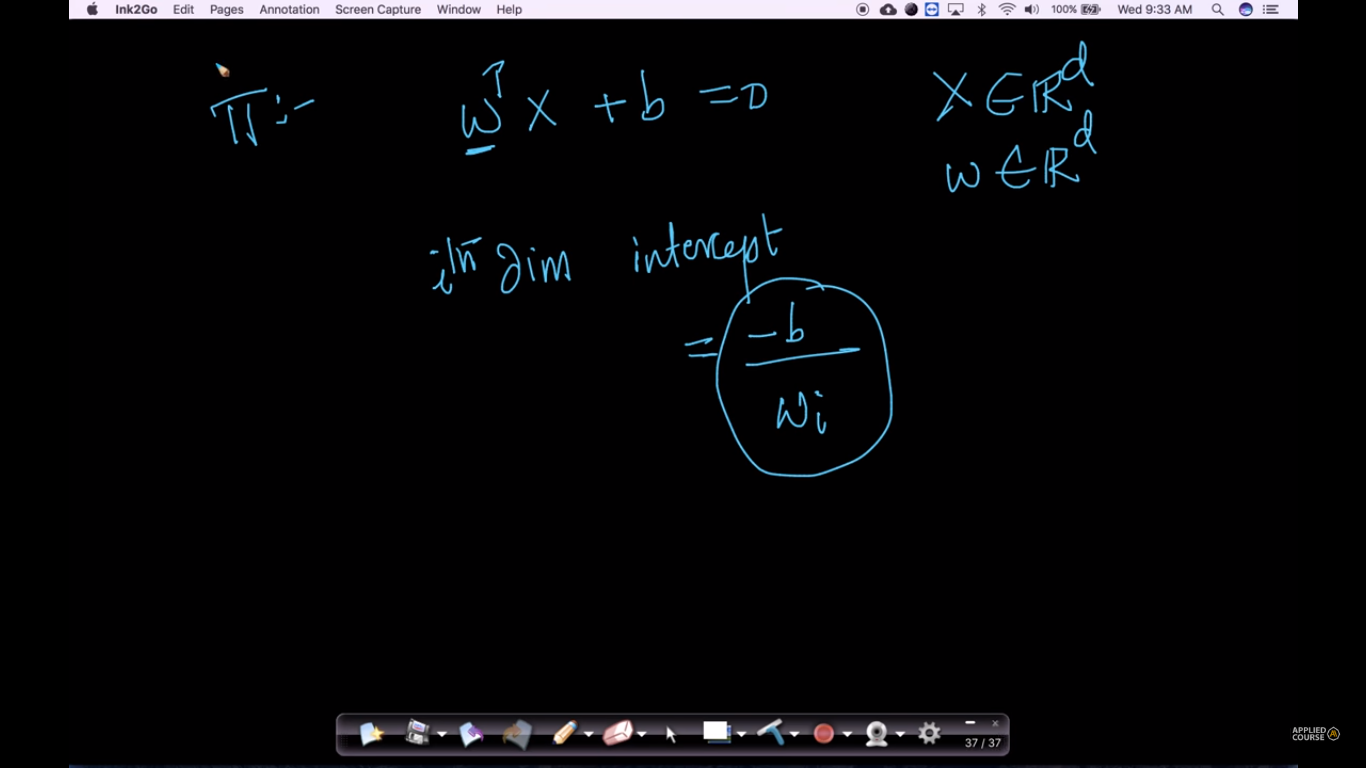 Ink2Go Edit Pages Annotation Screen Capture Window Help 100% Wed 9:33 AM
π:- wᵀx + b = 0 x ∈ ℝᵈ
w ∈ ℝᵈ
iᵗʰ dim intercept
= -b
wi
37 / 37
APPLIED
COURSE